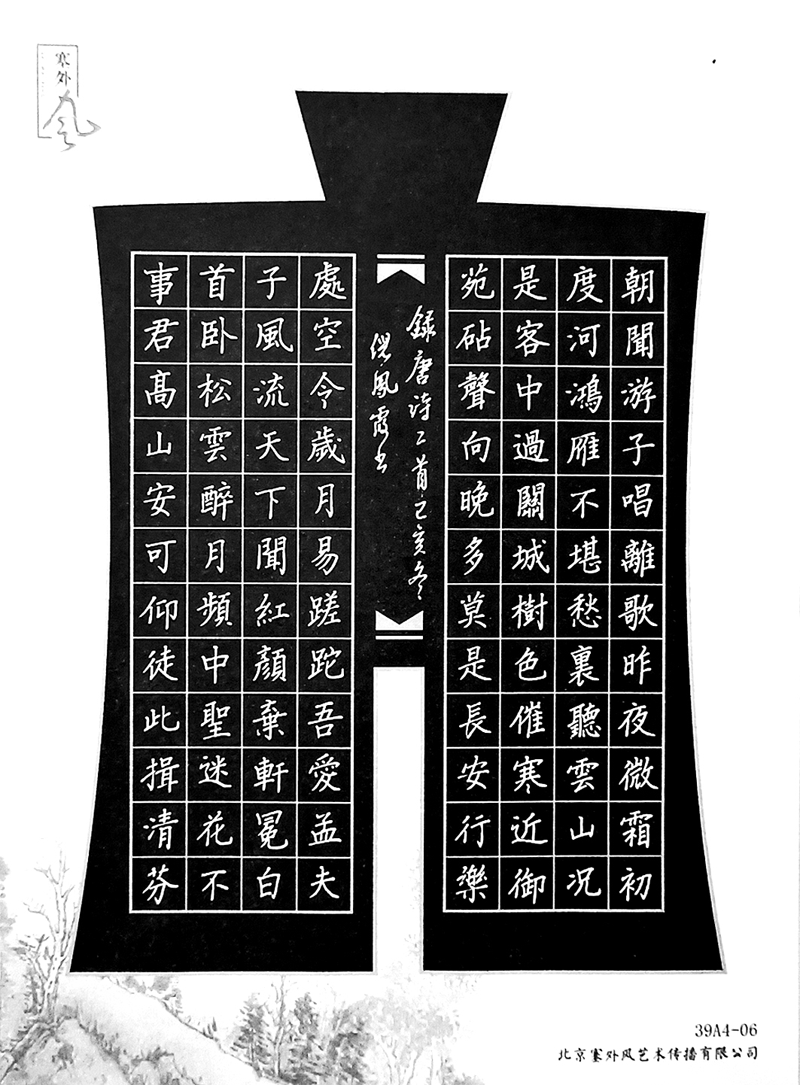 塞外
风
朝聞游子唱離歌昨夜微霜初
度河鴻雁不堪愁裏聽雲山况
是客中過關城樹色催寒近御
苑砧聲向晚多莫是長安行樂
處空令歲月易蹉跎吾愛孟夫
子風流天下聞紅顔棄軒冕白
首卧松雲醉月頻中聖迷花不
事君髙山安可仰徒此揖清芬
録唐诗二首己亥冬
霞书
39A4-06
北京塞外风艺术传播有限公司